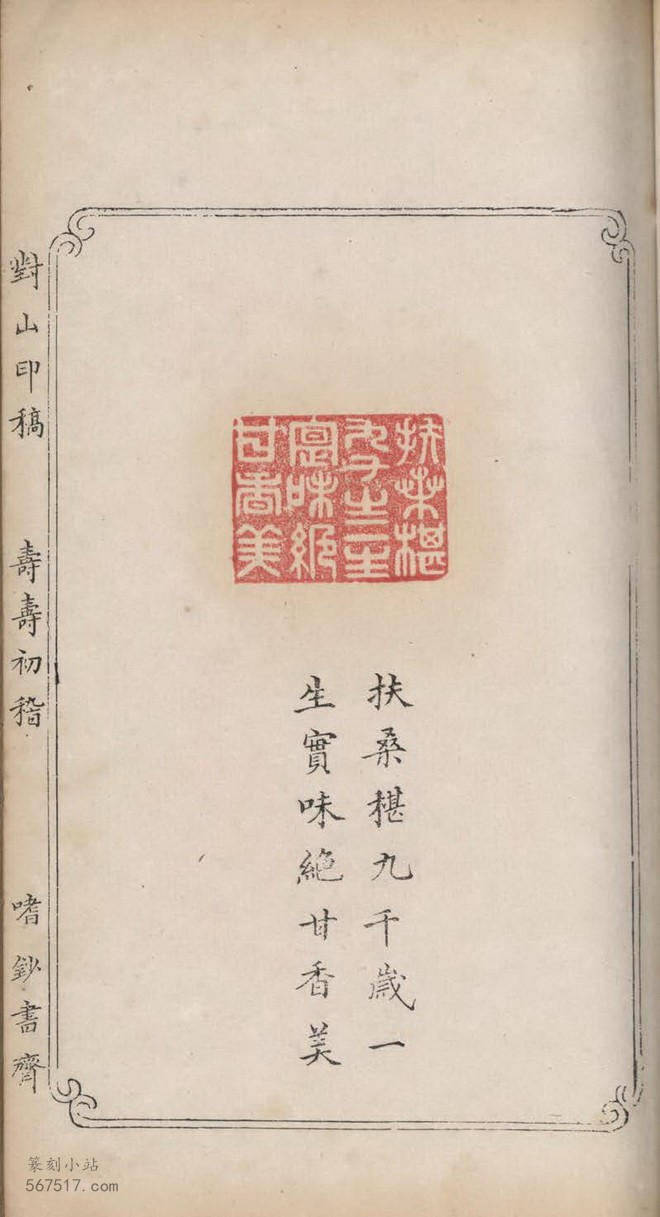 扶桑椹
九千歲一生
實味絕
甘香美
扶桑椹九千歲一
生實味絕甘香美
對山印稿
壽壽初稽
嗜鈔書齋
篆刻小站
567517.com